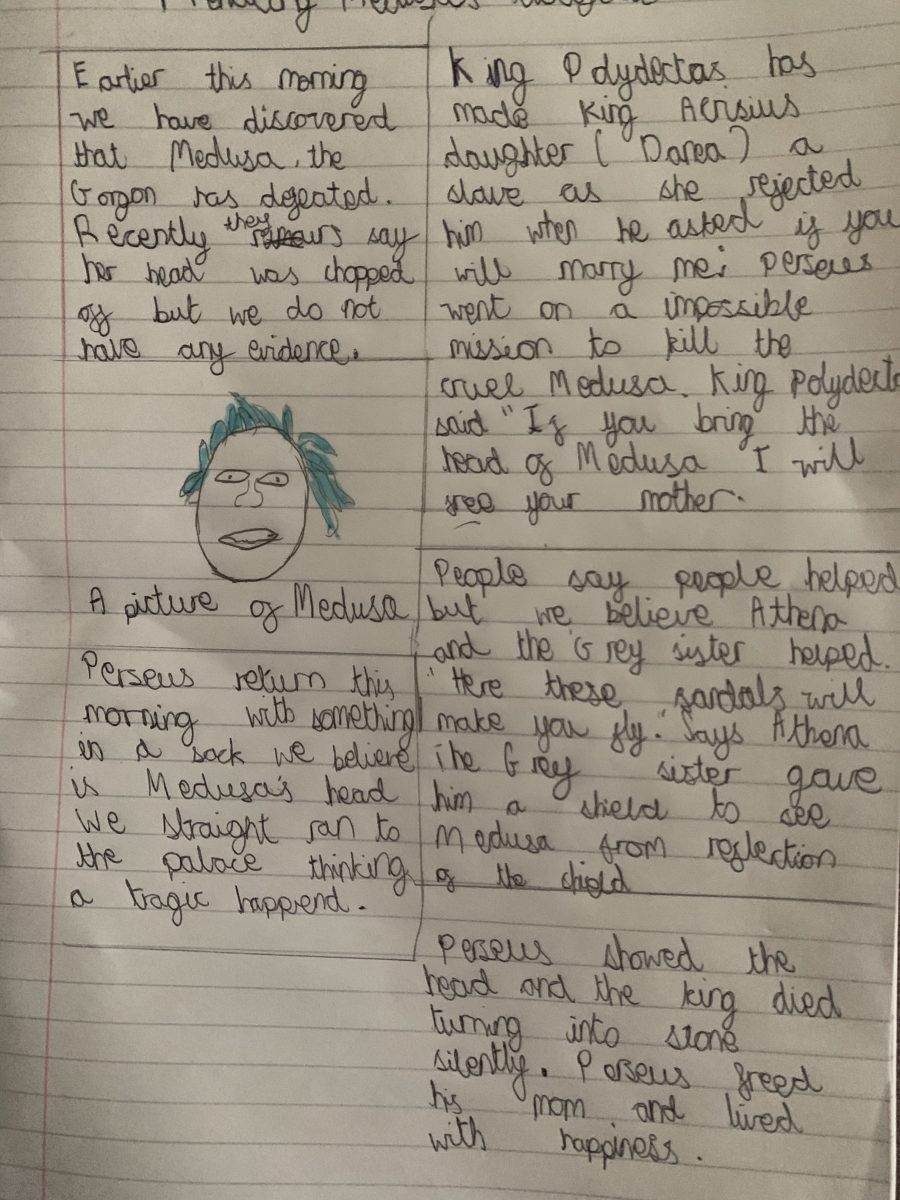 Earlier this morning
we have discovered
that Medusa, the
Gorgon has defeated.
Recently they say
her head was chopped
off but we do not
have any evidence.
A picture of Medusa
Perseus return this
morning with something
in a sack we believe
is Medusa's head
We straight ran to
the palace thinking
a tragic happend.
King Polydectas has
made King Acrisius
daughter ( Danea) a
slave as she rejected
him when he asked if you
will marry me; Perseus
went on a impossible
mission to kill the
cruel Medusa. King
said "If you bring the
head of Medusa I will
free your mother.
People say people helped
but we believe Athena
and the Grey sister helped.
"Here these sandals will
make you fly." Says Athena
The Grey sister gave
him a shield to see
Medusa from reflection
of the shield
Perseus showed the
head and the king died
turning into stone
silently. Perseus freed
his mom and lived
with happiness.